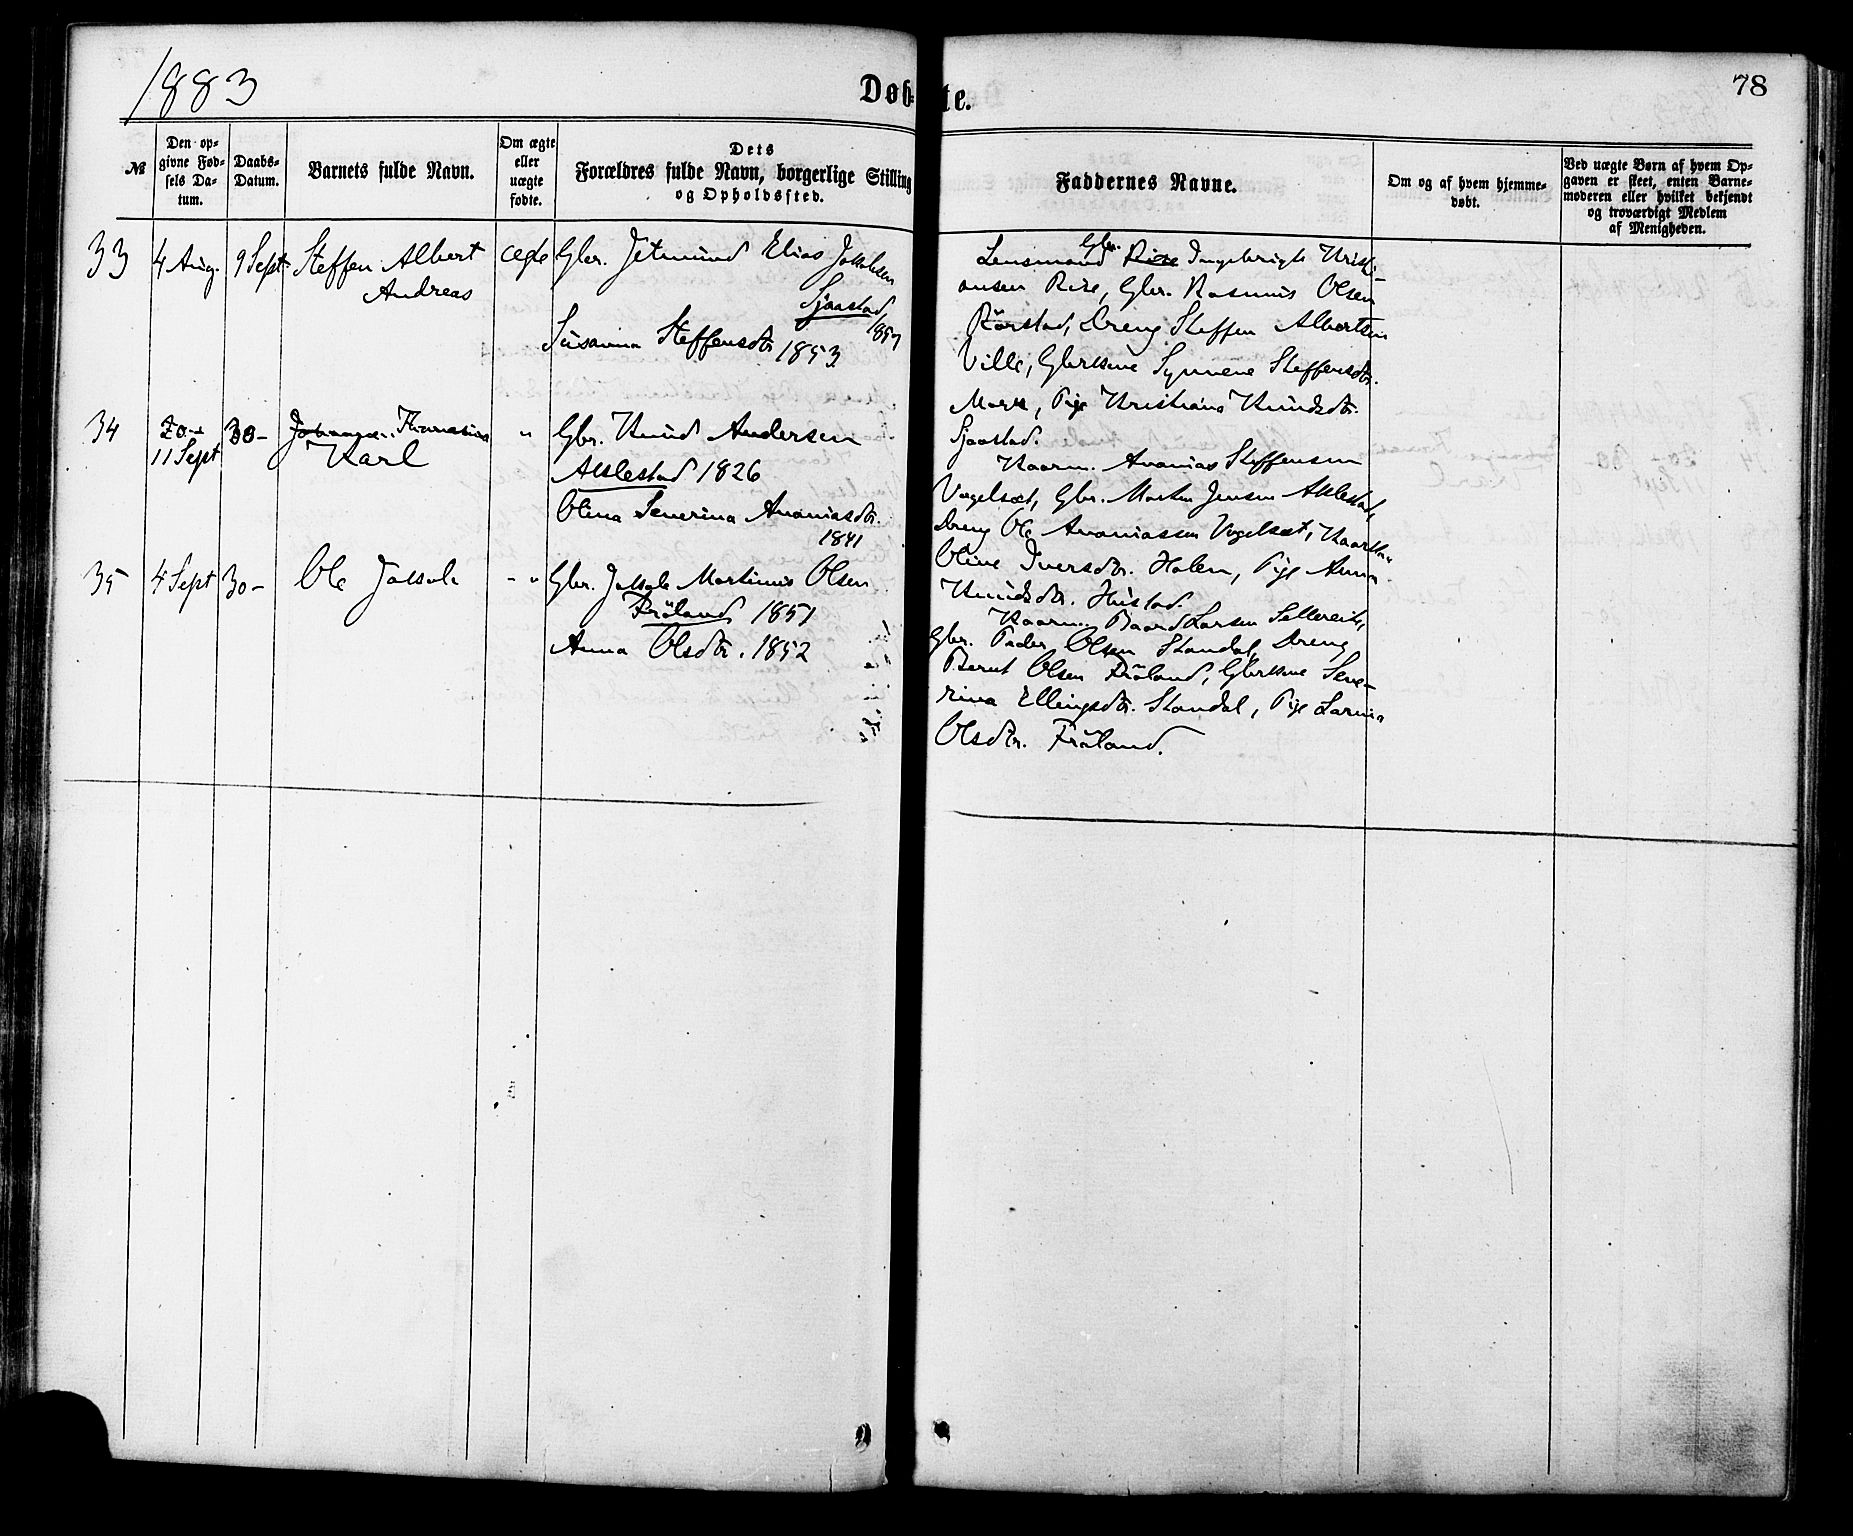 1883
Døbte.
78
№
Den opgivne Fødsels Datum.
Daabs-Datum.
Barnets fulde Navn.
Om ægte eller uægte fødte.
Dets Forældres fulde Navn, borgerlige Stilling og Opholdssted.
Faddernes Navne.
Om og af hvem hjemmedøbt.
Ved uægte Børn af hvem Opgaven er skeet, enten Barnemoderen eller hvilket bekjendt og troværdigt Medlem af Menigheden.
33
4 Aug.
9 Sept
Steffen Albert
Andreas
ægte
Gbr. Jetmund Elias Jakobsen
Sjaastad,
1857
Susanna Steffensdtr 1853
Gbr.
Lensmand Rise Ingebrigt Kristi-
ansen Rise, Gbr. Rasmus Olsen
Rörstad, Dreng Steffen Albertsen
Ville, Gbrkone Synneve Steffensdtr.
Mork, Pige Kristiana Knudsdtr.
Sjaastad.
34
20
11 Sept
30 -
Karl
"
Gbr. Knud Andersen
Aklestad 1826
Olina Severina Ananiasdtr.
1841
Kaarm. Ananias Steffensen
Vagelsæt, Gbr. Morten Jensen Aklestad,
Dreng Ole Ananiassen Vagelsæt,
Oline Iversdtr. Holen, Pige Anna
Knudsdtr. Hustad.
35
4 Sept
30 -
Ole Jakob
- "
Gbr. Jakob Martinus Olsen
Fröland 1851
Anna Olsdtr. 1852
Kaarm. Baard Larsen
Gbr. Peder Olsen Standal, Dreng
Bernt Olsen Fröland, Gbrkone Seve-
rina Ellingsdtr. Standal, Pige Larina
Olsdtr. Fröland.